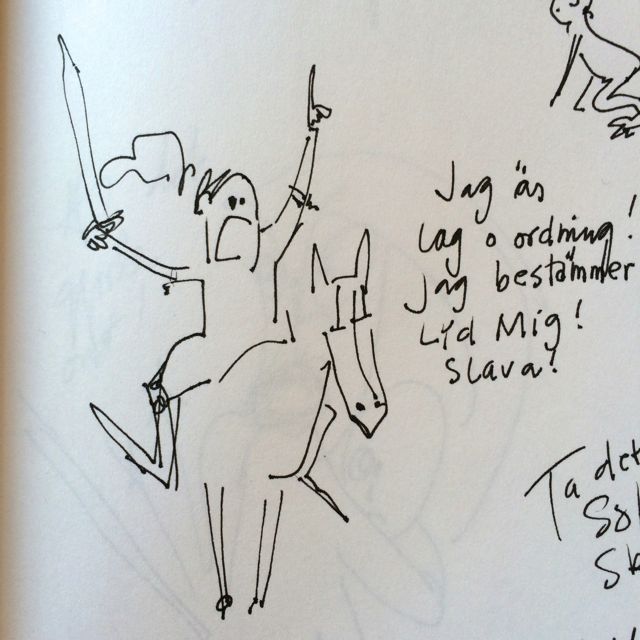 Jag är
Lag o ordning!
Jag bestämmer
Lyd Mig!
Slava!
Ta det